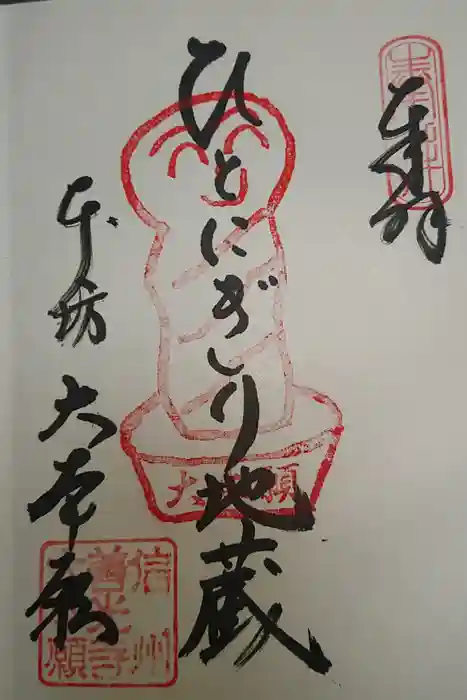 奉拝
ひとにぎり地蔵
本坊 大本願
大本願
信州
善光寺
大本願